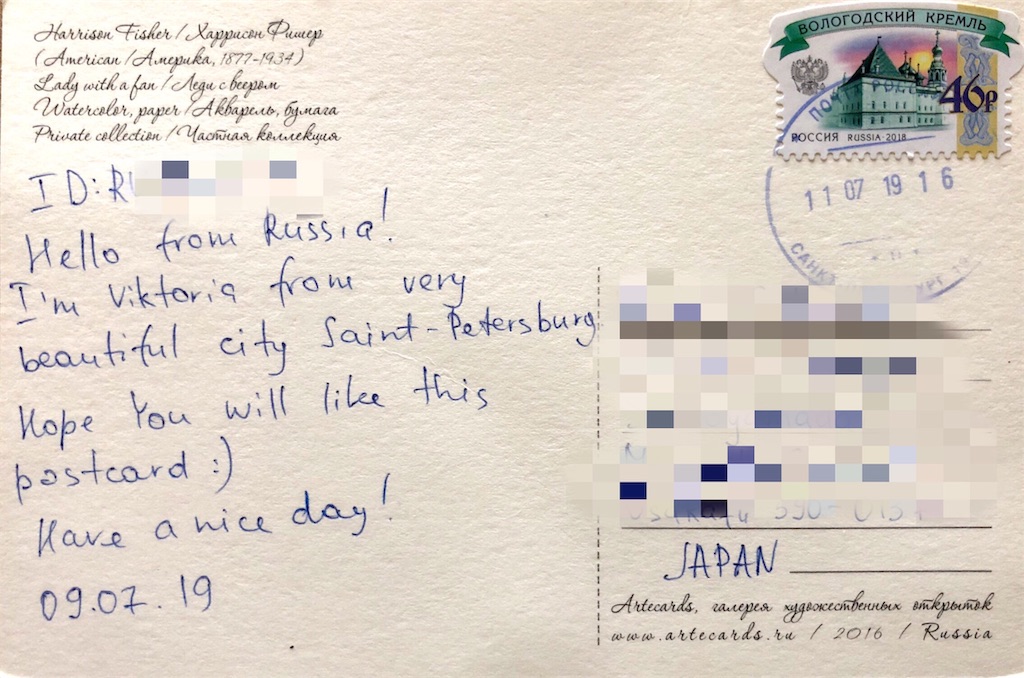 Harrison Fisher / Харрисон Фишер
(American / Америка, 1877-1934)
Lady with a fan / Леди с веером
Watercolor, paper / Акварель, бумага
Private collection / Частная коллекция
ID: R
Hello from Russia!
I'm Viktoria from very
beautiful city Saint-Petersburg.
Hope You will like this
postcard :)
Have a nice day!
09.07.19
ВОЛОГОДСКИЙ КРЕМЛЬ
46р
РОССИЯ RUSSIA·2018
11 07 19 16
JAPAN
Artecards, галерея художественных открыток
www.artecards.ru / 2016 / Russia